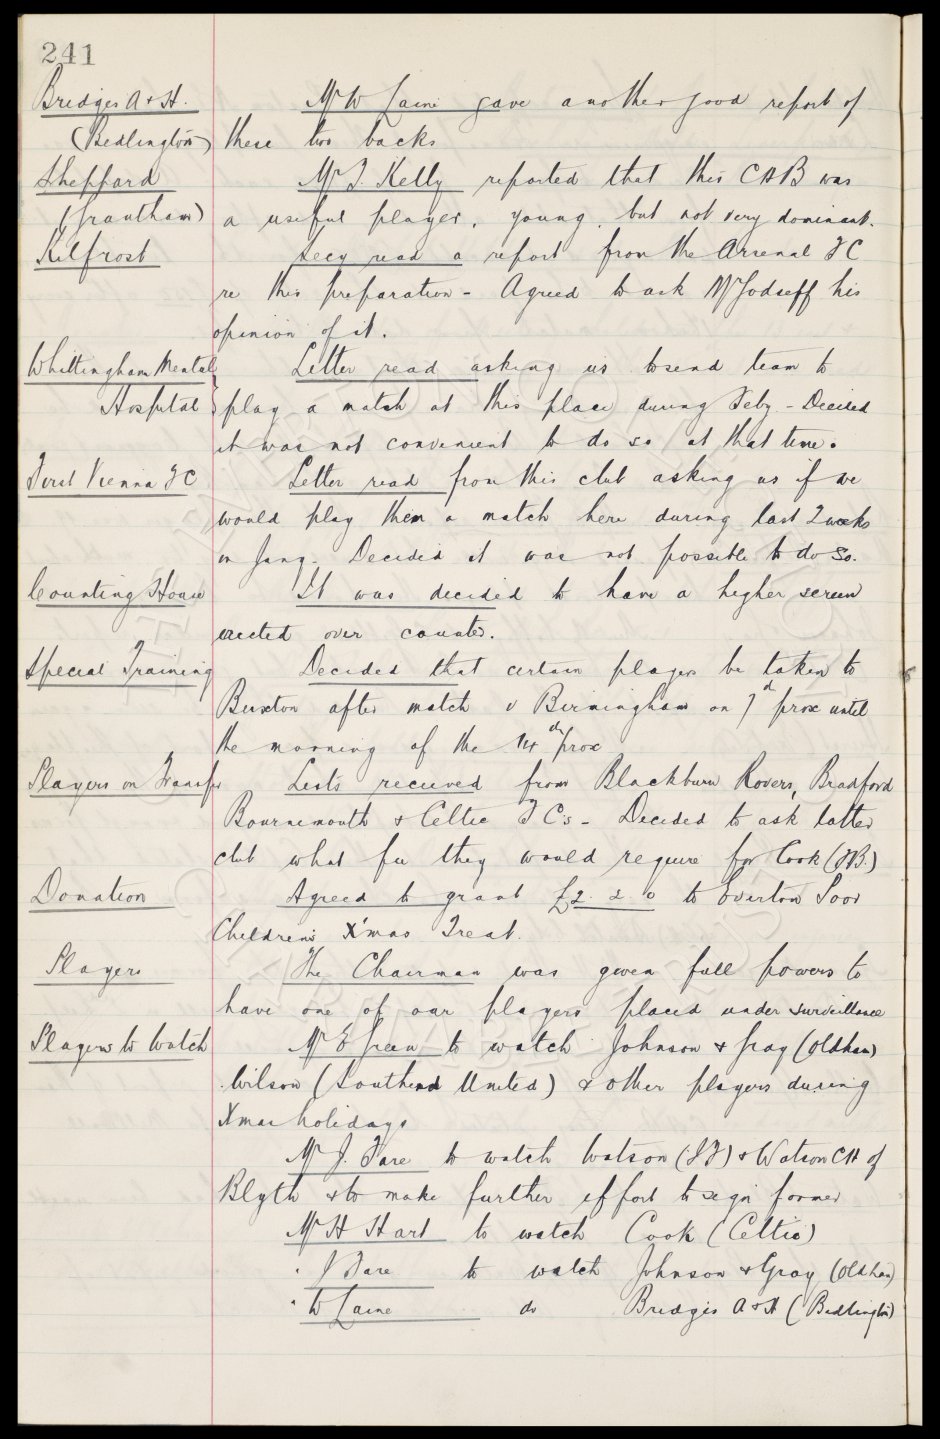 241
Bridges A & H. Mr W Laini gave another good report of
(Bedlington) these two backs
Sheppard Mr J. Kelly reported that this CHB was
(Grantham) a useful player, young, but not very dominant.
Kilfrost Secy read a report from the Arsenal FC
re this preparation - Agreed to ask Mr Jodseff his
opinion of it.
Whittingham Mental Letter read asking us to send team to
Hospital play a match at this place during Feby - Decided
it was not convenient to do so at that time.
First Vienna FC Letter read from this club asking us if we
would play them a match here during last 2 weeks
in Jany. Decided it was not possible to do so.
Counting House It was decided to have a higher screen
erected over counter.
Special Training Decided that certain players be taken to
Buxton after match v Birmingham on 7th prox until
the morning of the 14th prox
Players on Transfer Lists received from Blackburn Rovers, Bradford
Bournemouth & Celtic FCs - Decided to ask latter
club what fee they would require for Cook (FB.)
Donation Agreed to grant £2. 2. 0 to Everton Poor
Children's X'mas Treat.
Players The Chairman was given full powers to
have one of our players placed under surveillance
Players to Watch Mr E Green to watch Johnson & Gray (Oldham)
Wilson (Southend United) & other players during
Xmas holidays
Mr J. Fare to watch Watson (IF) & Watson CH of
Blyth & to make further effort to sign former
Mr H Hart to watch Cook (Celtic)
" J Fare to watch Johnson & Gray (Oldham)
" W Laine do Bridges A & H (Bedlington)